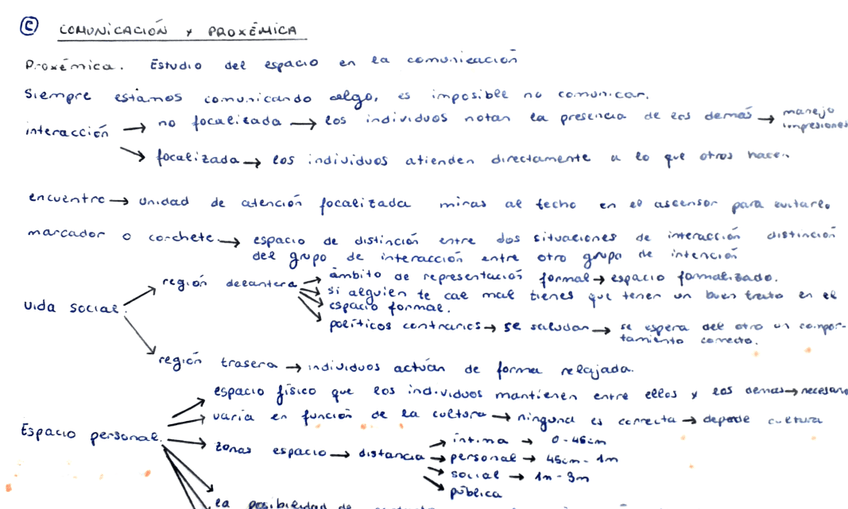 C COMUNICACIÓN Y PROXÉMICA
Proxémica. Estudio del espacio en la comunicación
Siempre estamos comunicando algo, es imposible no comunicar.
interacción → no focalizada → los individuos notan la presencia de los demás → manejo impresiones
→ focalizada → los individuos atienden directamente a lo que otros hacen
encuentro → unidad de atención focalizada miras al techo en el ascensor para evitarlo
marcador o corchete → espacio de distinción entre dos situaciones de interacción distinción
del grupo de interacción entre otro grupo de intención
vida social: → región delantera → ámbito de representación formal → espacio formalizado.
→ si alguien te cae mal tienes que tener un buen trato en el
→ espacio formal.
→ políticos contrarios → se saludan → se espera del otro un compor-
tamiento correcto.
→ región trasera → individuos actúan de forma relajada.
Espacio personal. → espacio físico que los individuos mantienen entre ellos y los demás → necesario
→ varía en función de la cultura → ninguna es correcta → depende cultura
→ zonas espacio → distancia → íntima → 0-45cm
→ personal → 45cm-1m
→ social → 1m-3m
→ pública
→ la posibilidad de